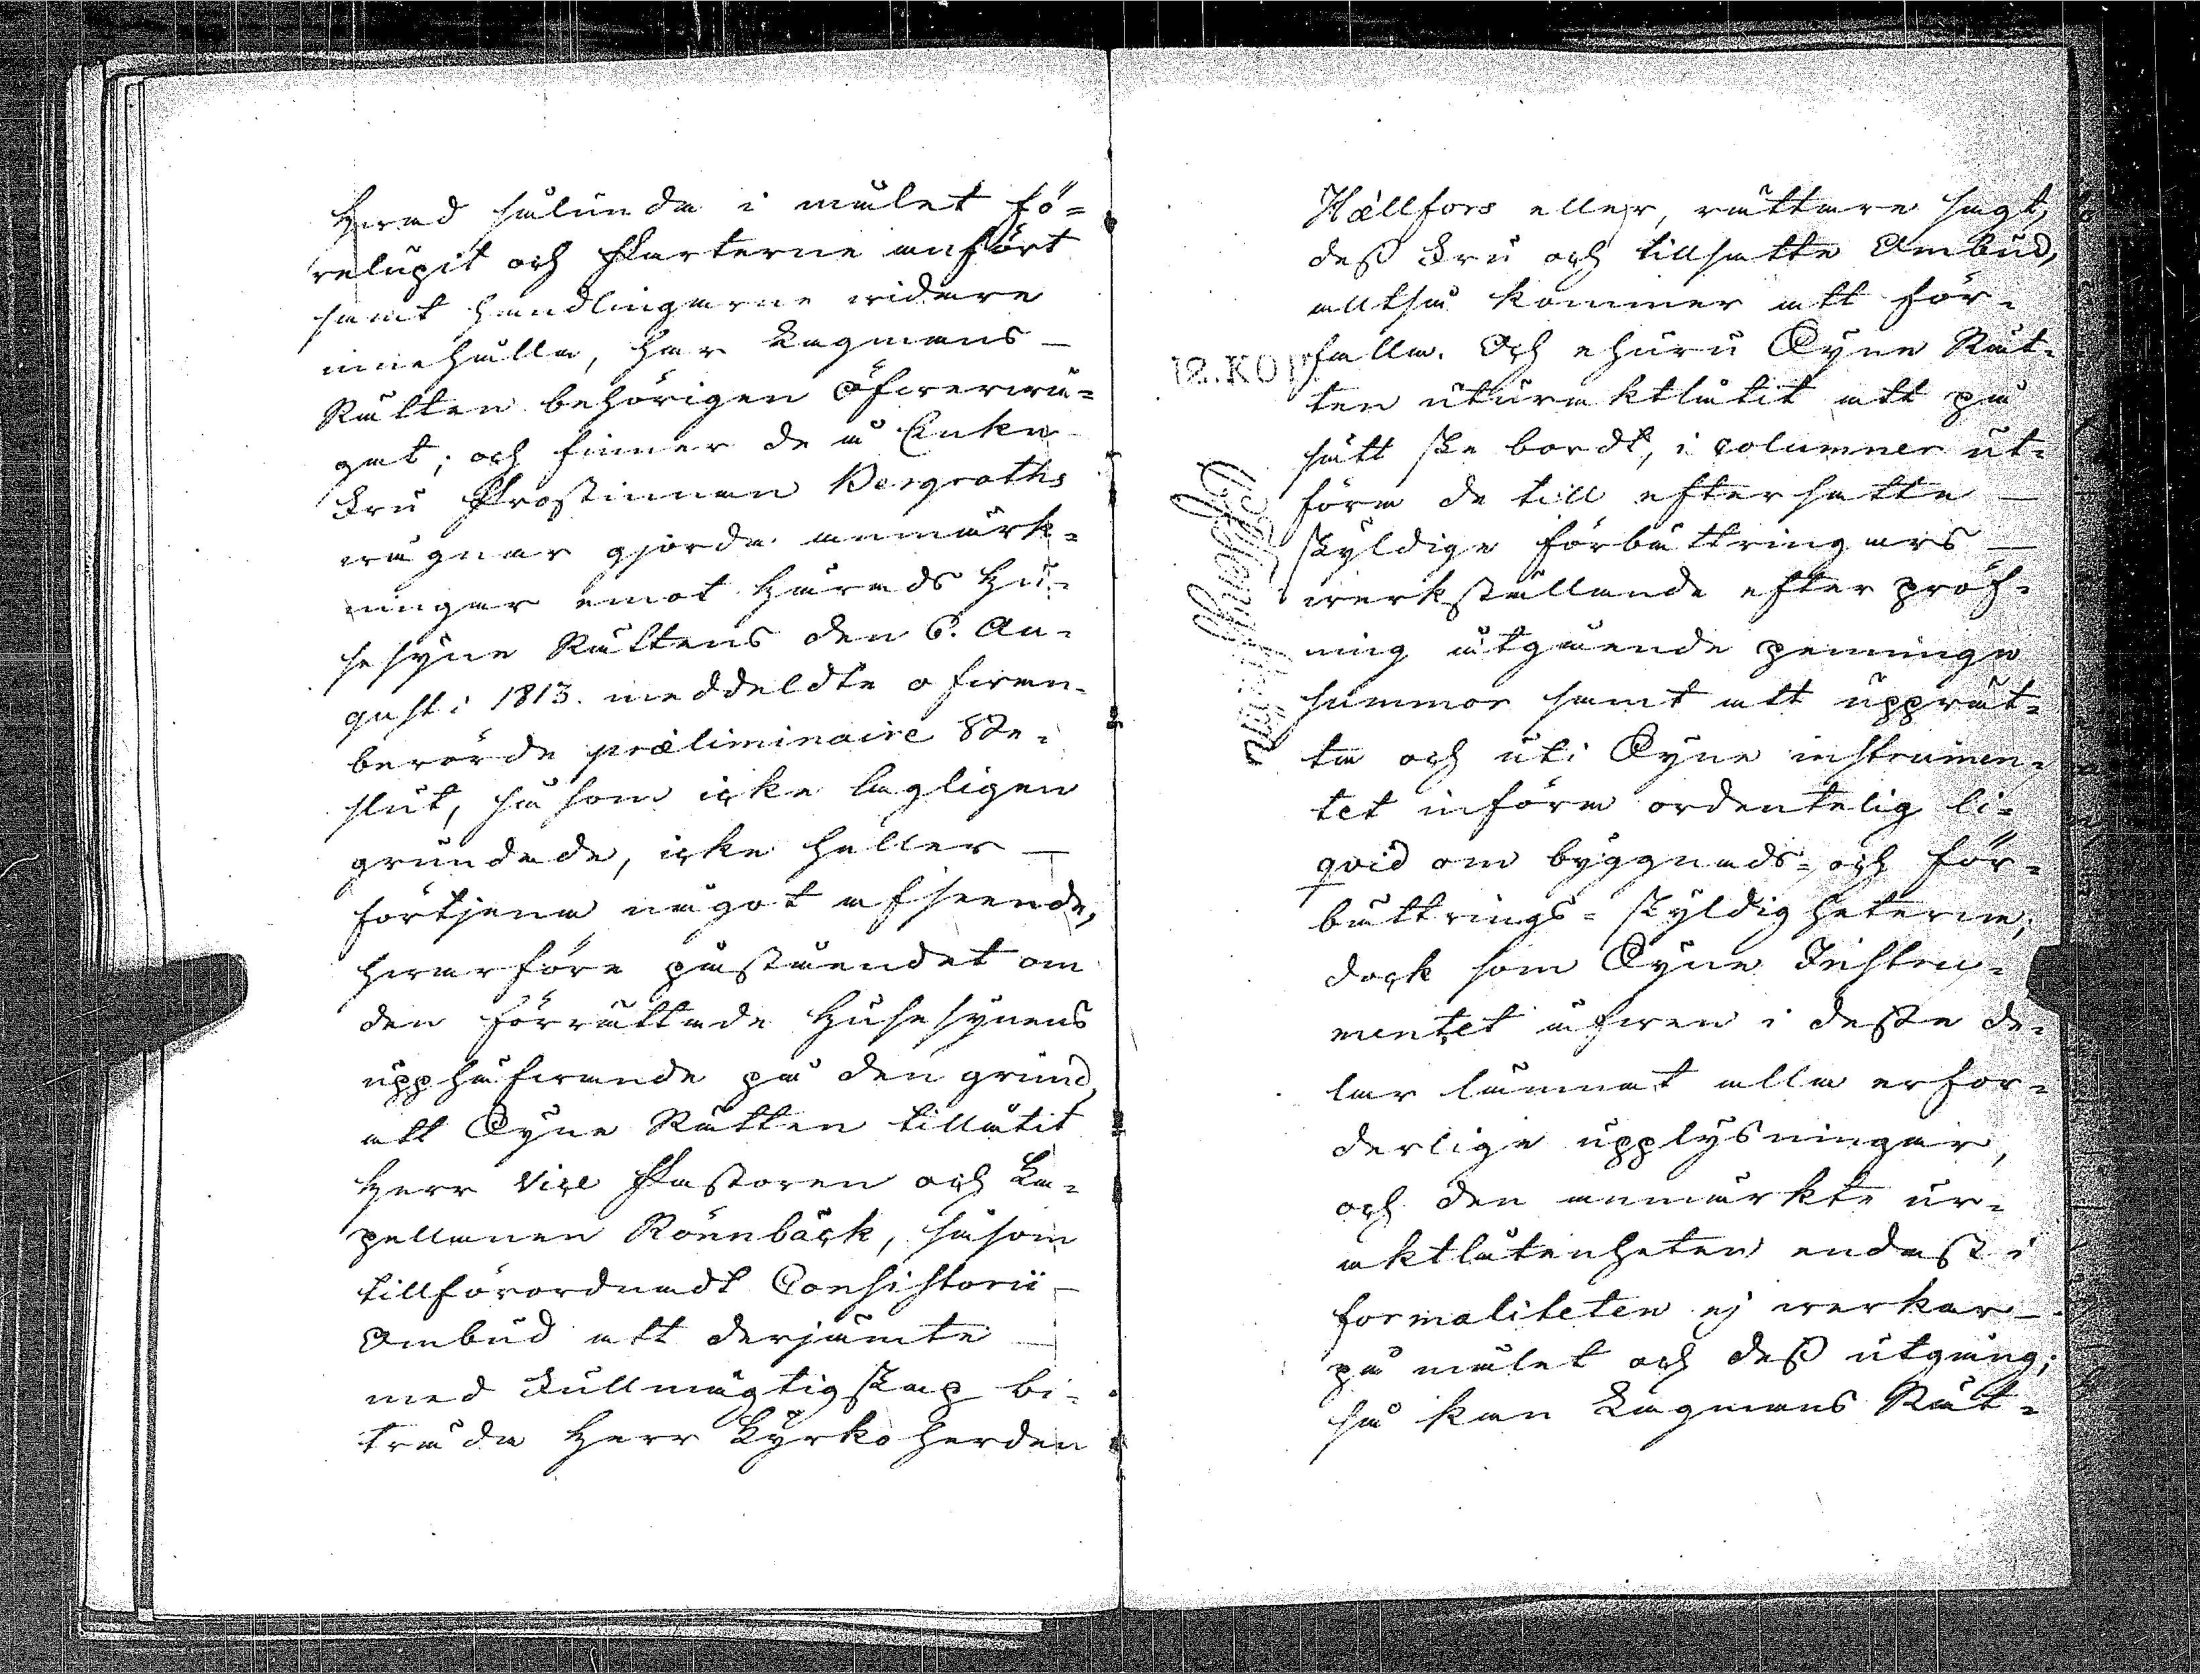 Hvad sålunda i målet fö=
relupit och Parterne anfört
samt handlingarne vidare
innehålla, har Lagmans
Rätten behörigen öfvervä=
gat; och finner de å Enke
Fru Prostinnan Bergroths
vägnar gjorda anmärk=
ningar emot Härads Hu=
sesyne Rättens den 6. Au=
gusti 1813. meddeldte ofvan=
berörde præliminaire Be=
slut, såsom icke lagligen
grundade, icke heller
förtjena något afseende,
hvarföre påståendet om
den förrättade Husesynens
upphäfvande på den grund,
att Syne Rätten tillåtit
Herr Vice Pastoren och Ka=
pellanen Rönnbäck, såsom
tillförordnadt Consistorii
Ombud att derjämte
med Fullmägtigskap bi=
träda Herr Kyrkoherden
Hællfors eller, rättare sagt,
dess Fru och tillsatte Ombud,
alltså kommer att för=
falla. Och ehuru Syne Rät=
12.KOP
ten uturaktlåtit att på
sätt ske bordt, i columner ut=
föra de till eftersatte
skyldige förbättringars
verkställande efter pröf=
ning åtgående penninge
summor samt att upprät=
ta och uti Syne instrumen=
tet införa ordentelig li=
qvid om byggnads= och för=
bättrings=skyldigheterne;
dock som Syne Instru=
mentet äfven i desse de=
lar lämnat alla erfor=
derlige upplysningar,
och den anmärkte ur=
aktlåtenheten endast i
formaliteten ej verkar
på målet och dess utgång;
så kan Lagmans Rät=